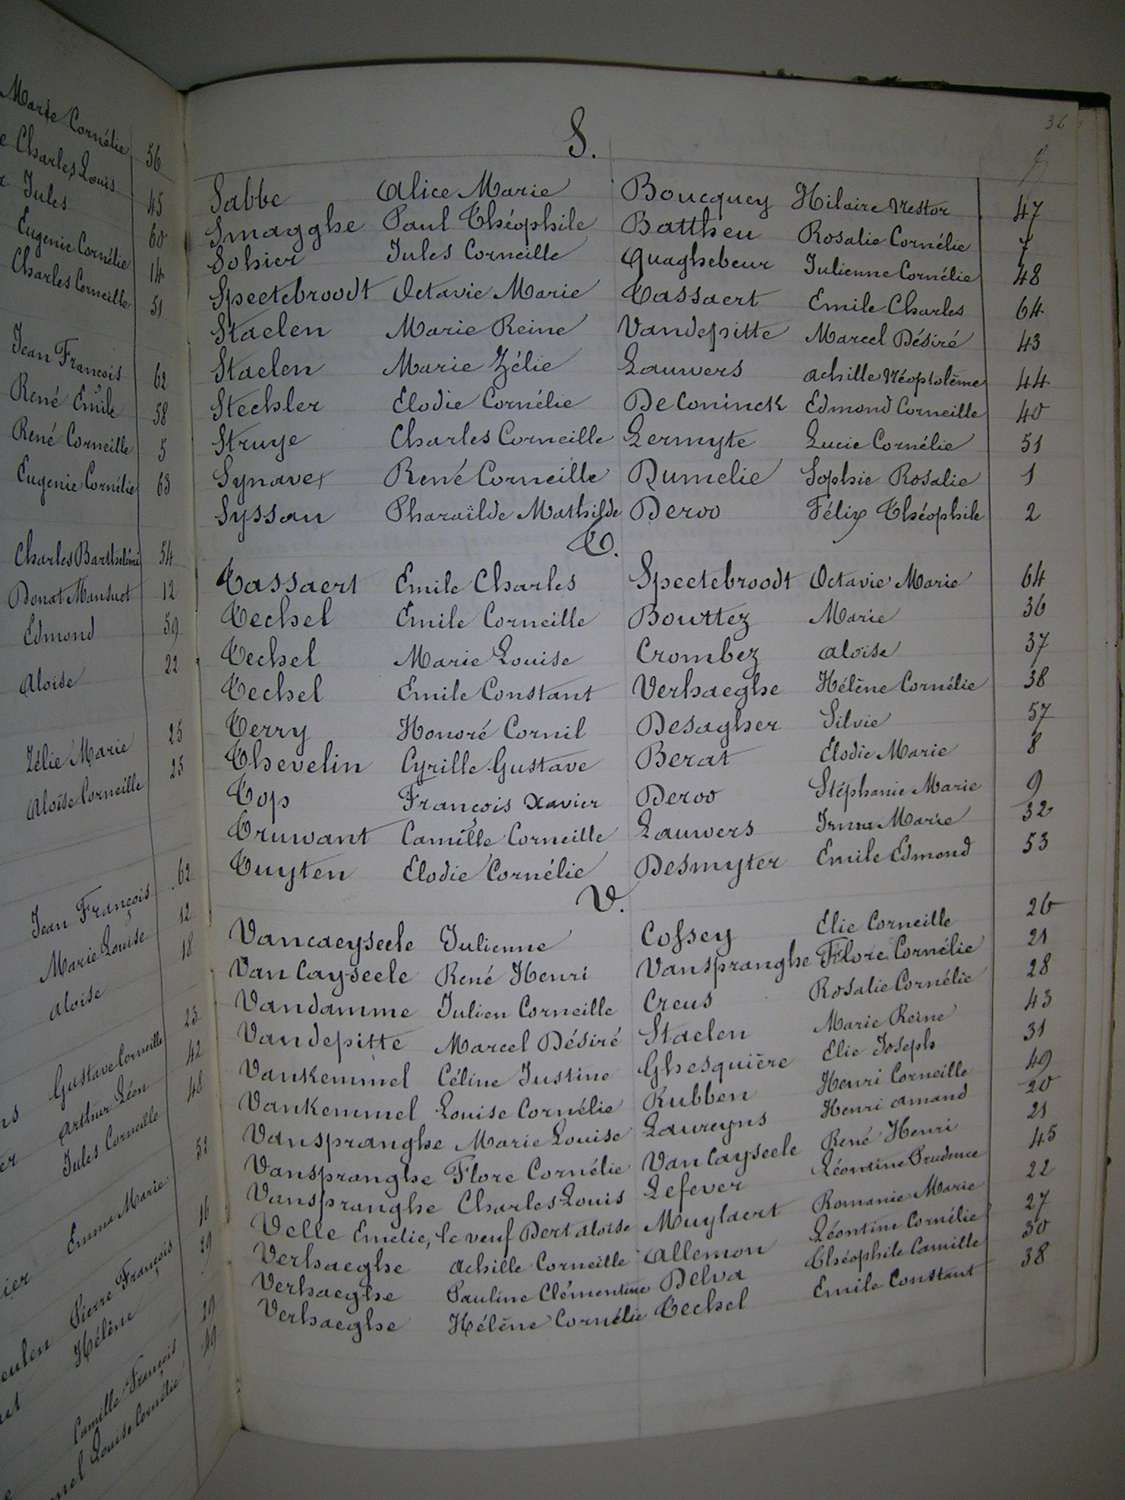 Marie Cornélie 56
e Charles Louis 45
Jules 60
Eugenie Cornélie 14
Charles Corneille 51
Jean François 62
René Emile 58
René Corneille 5
Eugenie Cornélie 63
Charles Barthélémi 54
Donat Mansuet 12
Edmond 59
Aloïse 22
Zélie Marie 25
Aloïse Corneille 25
Jean François 62
Marie Louise 12
Aloïse 18
Gustave Corneille 23
Arthur Léon 42
Jules Corneille 48
Emma Marie 51
Pierre François 16
Hélène 29
Camille François 29
Louise Cornélie 49
36
S.
Sabbe Alice Marie Boucquey Hilaire Nestor 47
Smagghe Paul Théophile Battheu Rosalie Cornélie 7
Sohier Jules Corneille Quaghebeur Julienne Cornélie 48
Speetebroodt Octavie Marie Tassaert Emile Charles 64
Staelen Marie Reine Vandepitte Marcel Désiré 43
Staelen Marie Zélie Lauwers Achille Néoptolème 44
Stechler Elodie Cornélie De Coninck Edmond Corneille 40
Struye Charles Corneille Lermyte Lucie Cornélie 51
Synave René Corneille Dumelie Sophie Rosalie 1
Syssau Pharaïlde Mathilde Deroo Félix Théophile 2
T.
Tassaert Emile Charles Speetebroodt Octavie Marie 64
Techel Emile Corneille Bouttez Marie 36
Techel Marie Louise Crombez Aloïse 37
Techel Emile Constant Verhaeghe Hélène Cornélie 38
Terry Honoré Cornil Desagher Silvie 57
Thevelin Cyrille Gustave Berat Elodie Marie 8
Top François Xavier Deroo Stéphanie Marie 9
Truwant Camille Corneille Lauwers Irma Marie 32
Tuyten Elodie Cornélie Desmyter Emile Edmond 53
V.
Vancaeyseele Julienne Cossey Elie Corneille 26
Van Cayseele René Henri Vanspranghe Flore Cornélie 21
Vandamme Julien Corneille Creus Rosalie Cornélie 28
Vandepitte Marcel Désiré Staelen Marie Reine 43
Vankemmel Céline Justine Ghesquière Elie Joseph 31
Vankemmel Louise Cornélie Rubben Henri Corneille 49
Vanspranghe Marie Louise Laureyns Henri Amand 20
Vanspranghe Flore Cornélie Van Cayseele René Henri 21
Vanspranghe Charles Louis Lefever Léontine Prudence 45
Velle Emelie, le veuf Dert Aloïse Muylaert Romanie Marie 22
Verhaeghe Achille Corneille Allemon Léontine Cornélie 27
Verhaeghe Pauline Clémentine Delva Théophile Camille 30
Verhaeghe Hélène Cornélie Techel Emile Constant 38